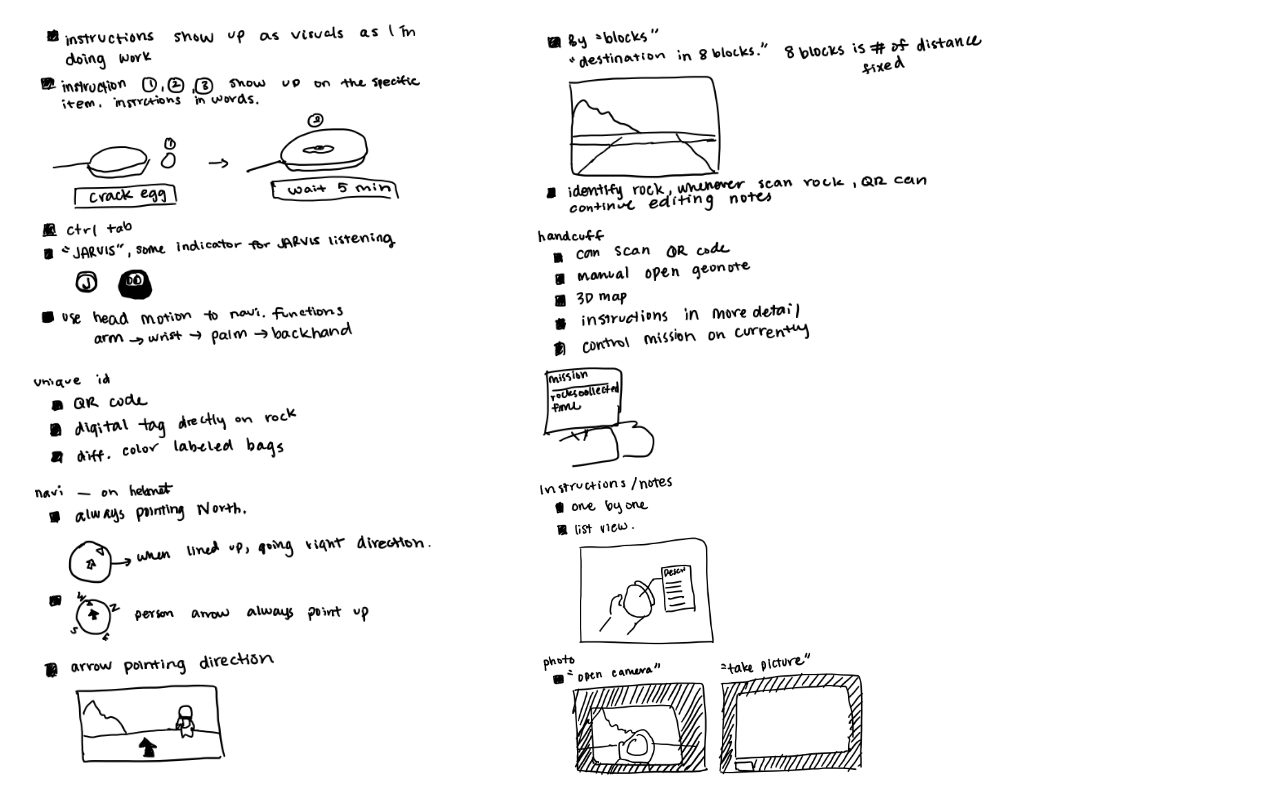 instructions show up as visuals as I'm
doing work
instruction ①,②,③ show up on the specific
item. instrctions in words.
①
②
crack egg
wait 5 min
ctrl tab
"JARVIS", some indicator for JARVIS listening
J
use head motion to navi. functions
arm → wrist → palm → backhand
unique id
QR code
digital tag directly on rock
diff. color labeled bags
navi — on helmet
always pointing North.
when lined up, going right direction.
W
N
S
E
person arrow always point up
arrow pointing direction
By "blocks"
"destination in 8 blocks." 8 blocks is # of distance
fixed
identify rock, whenever scan rock, QR can
continue editing notes
handcuff
can scan QR code
manual open geonote
3D map
instructions in more detail
control mission on currently
mission
rocks collected
time
Instructions/notes
one by one
list view.
Descri
photo
"open camera"
"take picture"